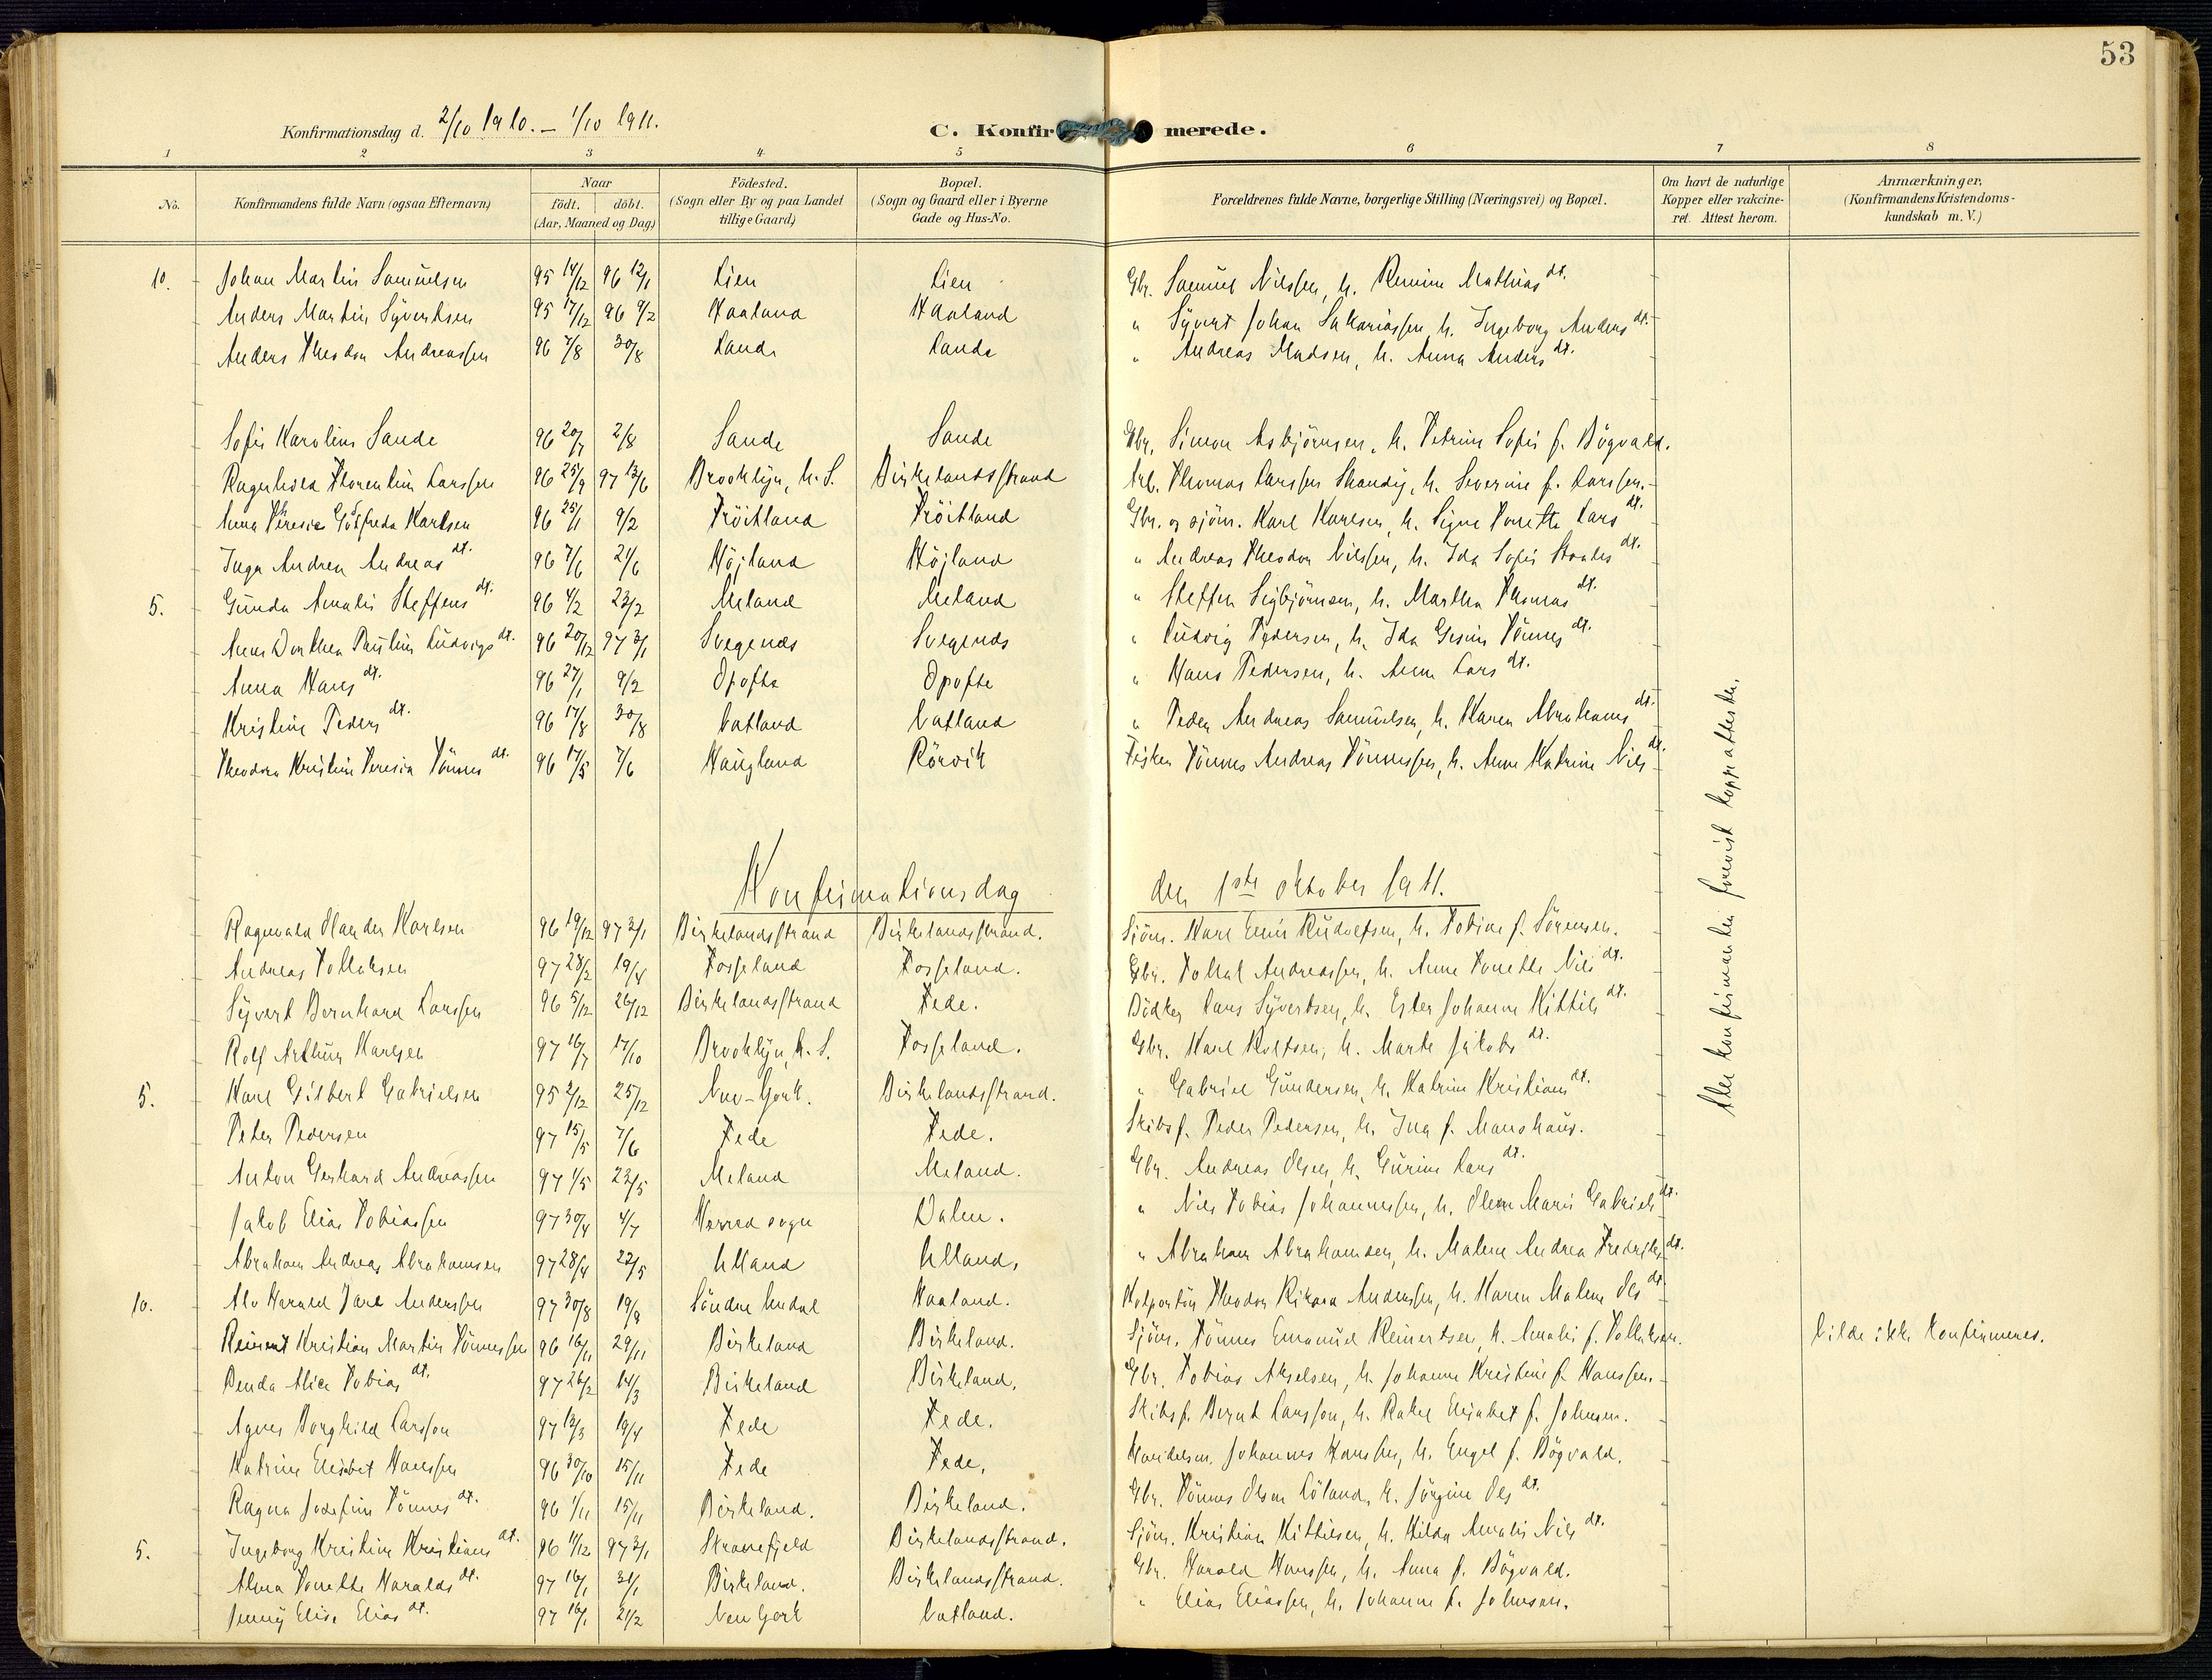 53
Konfirmationsdag d. 2/10 1910. – 1/10 1911.
C. Konfirmerede.
1 2 3 4 5 6 7 8
No. Konfirmandens fulde Navn (ogsaa Efternavn) Naar födt. döbt. (Aar, Maaned og Dag) Födested. (Sogn eller By og paa Landet tillige Gaard) Bopæl. (Sogn og Gaard eller i Byerne Gade og Hus-No. Forældrenes fulde Navne, borgerlige Stilling (Næringsvei) og Bopæl. Om havt de naturlige Kopper eller vakcineret. Attest herom. Anmærkninger. (Konfirmandens Kristendomskundskab m. V.)
10. Johan Martin Samuelsen 95 14/12 96 12/1 Lien Lien Gbr. Samuel Nilssen, h. Remine Mathias dt.
Anders Martin Syvertsen 95 17/12 96 9/2 Haaland Haaland " Syvert Johan Sakariassen, h. Ingeborg Anders dt.
Anders Theodor Andreassen 96 7/8 30/8 Lande Lande " Andreas Madsen, h. Anna Anders dt.
Sofie Karoline Sande 96 20/7 2/8 Sande Sande Gbr. Simon Asbjörnsen, h. Petrine Sofie f. Bögvald.
Ragnhild Florentin Larssen 96 25/9 97 13/6 Brooklyn, U.S. Birkelandsstrand Arb. Thomas Larssen Skandy, h. Severine f. Larssen.
Anna Theresie Godfreda Karlsen 96 25/1 9/2 Fröitland Fröitland Gbr. og sjöm. Karl Karlsen, h. Signe Tonette Lars dt.
Inga Andrea Andreas dt. 96 7/6 21/6 Höjland Höjland " Andreas Theodor Nilssen, h. Ida Sofie dt.
5. Gunda Amalie Steffens dt. 96 4/2 23/2 Meland Meland " Steffen Sigbjörnsen, h. Martha Thomas dt.
Anne Dorthea Pauline Ludvigs dt. 96 20/12 97 3/1 Svegenes Svegenes " Ludvig Pedersen, h. Ida Gesine Tönnes dt.
Anna Hans dt. 96 27/1 9/2 Opofte Opofte " Hans Pedersen, h. Anne Lars dt.
Kristine Peders dt. 96 17/8 30/8 Vatland Vatland " Peder Andreas Samuelsen, h. Karen Abrahams dt.
Theodora Kristine Teresia Tönnes dt. 96 17/5 7/6 Haugland Rörvik Fisker Tönnes Andreas Tönnessen, h. Anne Katrine Nils dt.
Alle konfirmander forevist koppeattester.
Konfirmationsdag den 1ste oktober 1911.
Ragnvald Olander Karlsen 96 19/12 97 3/1 Birkelandsstrand Birkelandsstrand. Sjöm. Karl Emil Rudolfsen, h. Tobine f. Sörensen.
Andreas Tollaksen 97 28/2 19/4 Fosseland Fosseland. Gbr. Tollak Andreassen, h. Anne Tonette Nils dt.
Syvert Bernhard Larssen 96 5/12 26/12 Birkelandsstrand Fede. Bödker Lars Syvertsen, h. Ester Johanne Kittils dt.
Rolf Arthur Karlsen 97 16/7 17/10 Brooklyn, U.S. Fosseland. Gbr. Karl Rolfsen, h. Marte Jakobs dt.
5. Karl Gilbert Gabrielsen 95 2/12 25/12 New-York. Birkelandsstrand. " Gabriel Gundersen, h. Katrine Kristians dt.
Peter Pedersen 97 15/5 7/6 Fede Fede. Skibsf. Peder Pedersen, h. Inga f. Monshaug.
Anton Gerhard Andreassen 97 1/5 23/5 Meland Meland. Gbr. Andreas Olsen, h. Gurine Lars dt.
Jakob Elias Tobiassen 97 30/4 4/7 Herred sogn Dalen. " Nils Tobias Johannessen, h. Olene Marie Gabriels dt.
Abraham Andreas Abrahamsen 97 28/4 22/5 Ulland Ulland. " Abraham Abrahamsen, h. Malene Andrea Fredriks dt.
10. Alv Harald Jarl Anderssen 97 30/8 19/9 Söndre Undal Haaland. Kolportör Theodor Rikard Anderssen, h. Karen Malene Ols dt.
Reinert Kristian Martin Tönnessen 96 16/11 29/11 Birkeland Birkeland. Sjöm. Tönnes Emanuel Reinertsen, h. Amalie f. Tollaksen. Vilde ikke konfirmeres.
Benda Alice Tobias dt. 97 26/2 14/3 Birkeland Birkeland. Gbr. Tobias Akselsen, h. Johanne Kristine f. Hanssen.
Agnes Borghild Larsson 97 13/3 19/4 Fede Fede. Skibsf. Bernt Larsson, h. Rakel Elisabet f. Johnsen.
Katrine Elisabet Hanssen 96 30/10 15/11 Fede Fede. Handelsm. Johannes Hanssen, h. Engel f. Bögvald.
Ragna Josefine Tönnes dt. 96 1/11 15/11 Birkeland. Birkeland. Gbr. Tönnes Olsen Löland, h. Jörgine Ols dt.
5. Ingeborg Kristine Kristians dt. 96 11/12 97 3/1 Skranefjeld Birkelandsstrand. Sjöm. Kristian Kittilsen, h. Hilda Amalie Nils dt.
Alma Tonette Haralds dt. 97 16/1 31/1 Birkeland. Birkelandsstrand. Gbr. Harald Hanssen, h. Anna f. Bögvald.
Jenny Elise Elias dt. 97 16/1 21/2 New York Vatland. " Elias Eliassen, h. Johanne f. Johnsen.